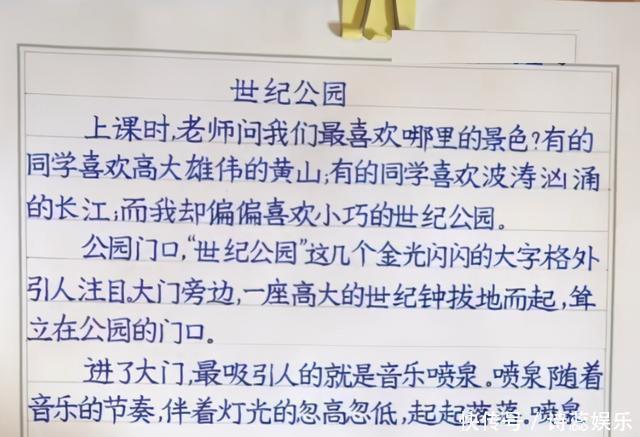 世纪公园
上课时,老师问我们最喜欢哪里的景色?有的
同学喜欢高大雄伟的黄山;有的同学喜欢波涛汹涌
的长江;而我却偏偏喜欢小巧的世纪公园。
公园门口,“世纪公园”这几个金光闪闪的大字格外
引人注目。大门旁边,一座高大的世纪钟拔地而起,耸
立在公园的门口。
进了大门,最吸引人的就是音乐喷泉。喷泉随着
音乐的节奏,伴着灯光的忽高忽低,起起落落。喷泉
快传号/诗蕊娱乐